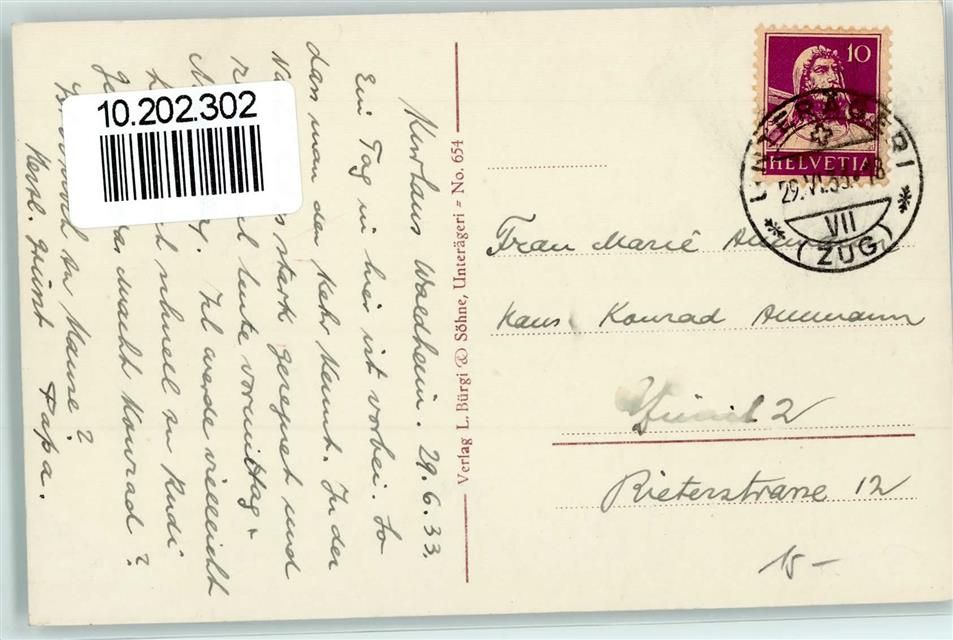 Kurhaus Waldheim. 29.6.33.
Ein Tag in hier ist vorbei. So
dass man den Kehr kennt. In der
stark geregnet und
heute vormittag.
Ich werde vielleicht
schnell zu Rudi
macht Konrad?
zu Hause?
Herzl. Grüsst Papa.
10.202.302
Verlag L. Bürgi & Söhne, Unterägeri - No. 654
10
HELVETIA
UNTERÄGERI
29.VI.33.
VII
(ZUG)
Frau Marie
Hans Konrad Ammann
Zürich 2
Rieterstrasse 12
15-